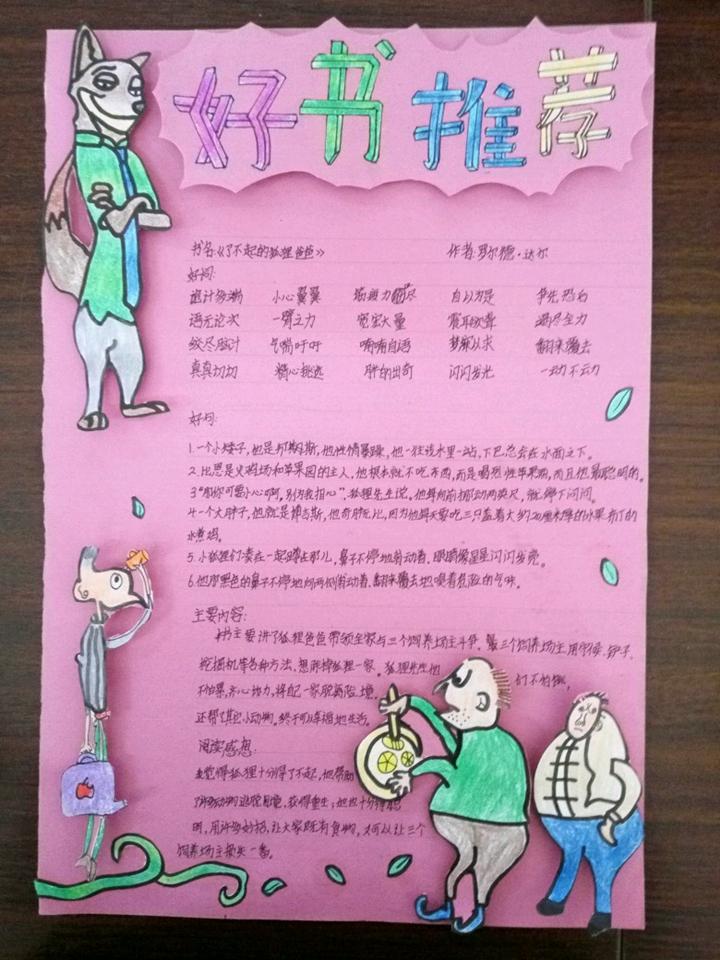 好书推荐
书名:《了不起的狐狸爸爸》 作者:罗尔德·达尔
好词:
诡计多端 小心翼翼 筋疲力尽 自以为是 争先恐后
语无论次 一臂之力 宽宏大量 震耳欲聋 竭尽全力
绞尽脑计 气喘吁吁 喃喃自语 梦寐以求 翻来覆去
真真切切 精心挑选 胖的出奇 闪闪发光 一动不动
好句:
1.一个小矮子,他是邦斯,他性情暴躁,他一往浅水里一站,下巴总会在水面之下。
2.比恩是火鸡场和苹果园的主人,他根本就不吃东西,而是喝烈性苹果酒,而且他最聪明的。
3."那你可要小心啊,别为我担心",狐狸先生说。他每向前挪动两英尺,就停下闻闻。
4.一个大胖子,他就是博吉斯,他奇胖无比,因为他每天要吃三只盖着大约20厘米厚的水果布丁的
水煮鸡。
5.小狐狸们凑在一起蹲在那儿,鼻子不停地耸动着,眼睛像星星闪闪发亮。
6.他那黑色的鼻子不停地向两侧耸动着,翻来覆去地嗅着危险的气味。
主要内容:
本书主要讲了狐狸爸爸带领全家与三个饲养场主斗争。三个饲养场主用守候、铲子、
挖掘机等各种方法,想除掉狐狸一家。狐狸先生他 们不怕饿,
不怕累,齐心协力,将自一家脱离险境,
还帮了其它小动物。终于可以幸福地生活。
阅读感想:
我觉得狐狸十分得了不起,他帮助
了许多动物逃脱困境,获得重生;他也十分得聪
明,用许多好招,让大家既有食物,又可以让三个
饲养场主损失一番。